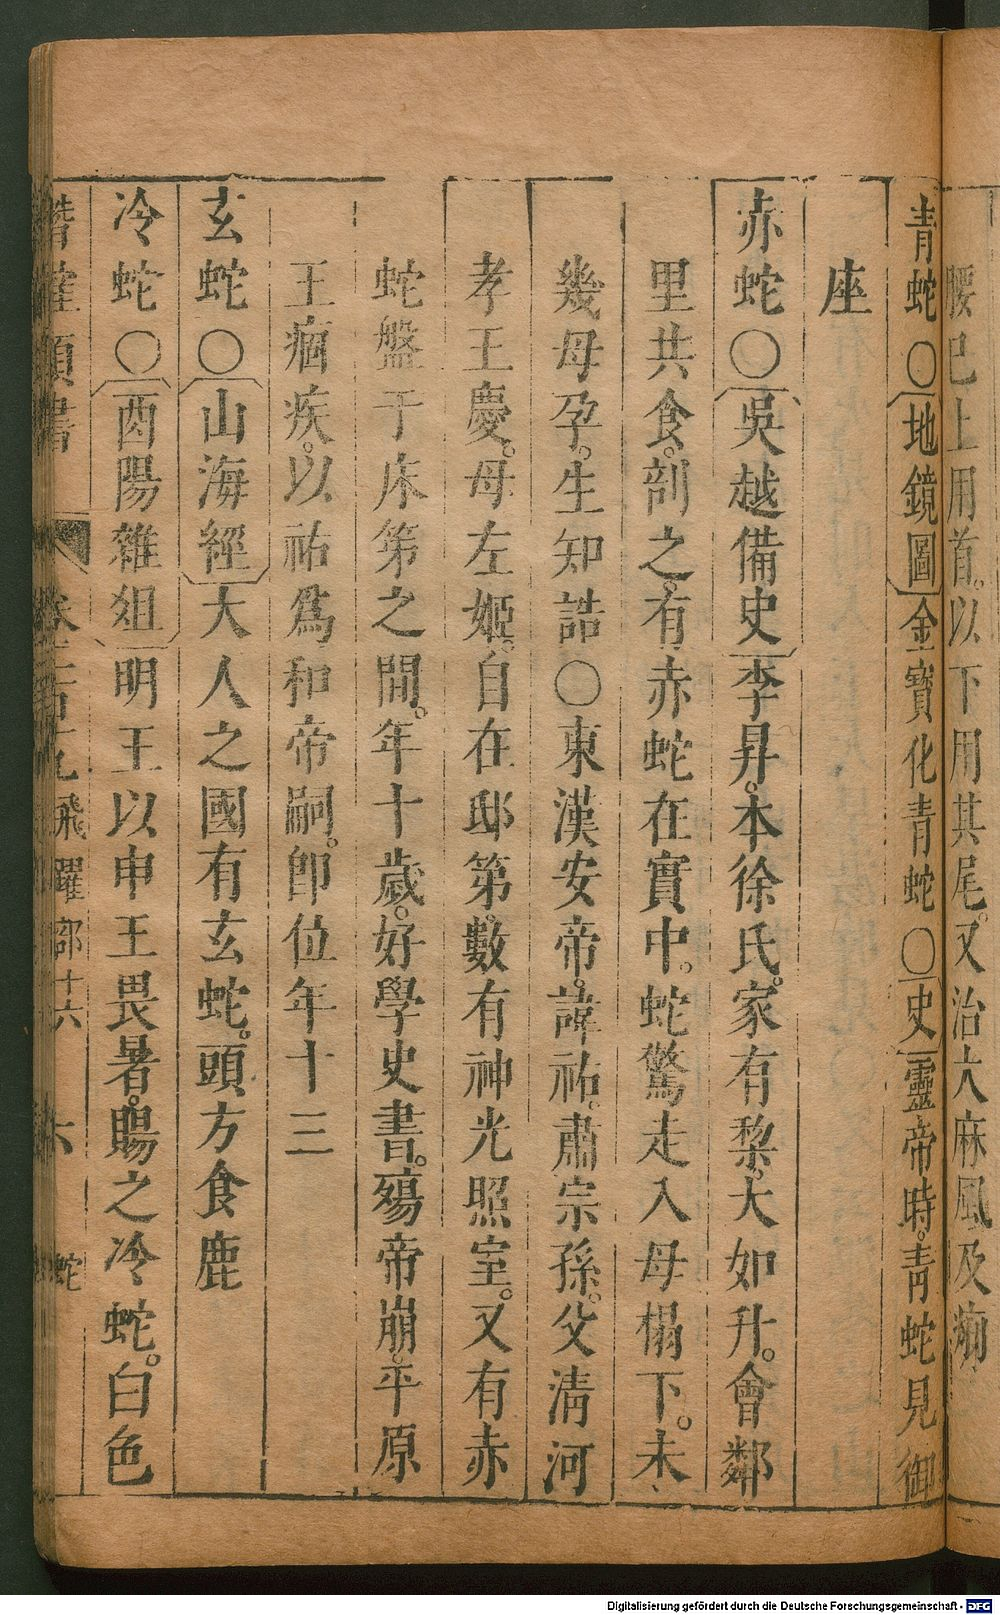 腰已上用首。以下用其尾。又治大麻風及癩
青蛇〇地鏡圖金寶化青蛇〇史靈帝時。青蛇見御
座
赤蛇〇吳越備史李昇。本徐氏。家有梨。大如升。會鄰
里共食。剖之。有赤蛇在實中。蛇驚走入母榻下。未
幾母孕。生知誥〇東漢安帝。諱祐。肅宗孫。父清河
孝王慶。母左姬。自在邸第。數有神光照室。又有赤
蛇盤于床第之間。年十歲。好學史書。殤帝崩。平原
王痼疾。以祐爲和帝嗣。卽位年十三
玄蛇〇山海經大人之國有玄蛇。頭方食鹿
冷蛇〇酉陽雜俎明王以申王畏暑。賜之冷蛇。白色
類書 飛躍部十六 六 蛇
Digitalisierung gefördert durch die Deutsche Forschungsgemeinschaft - DFG